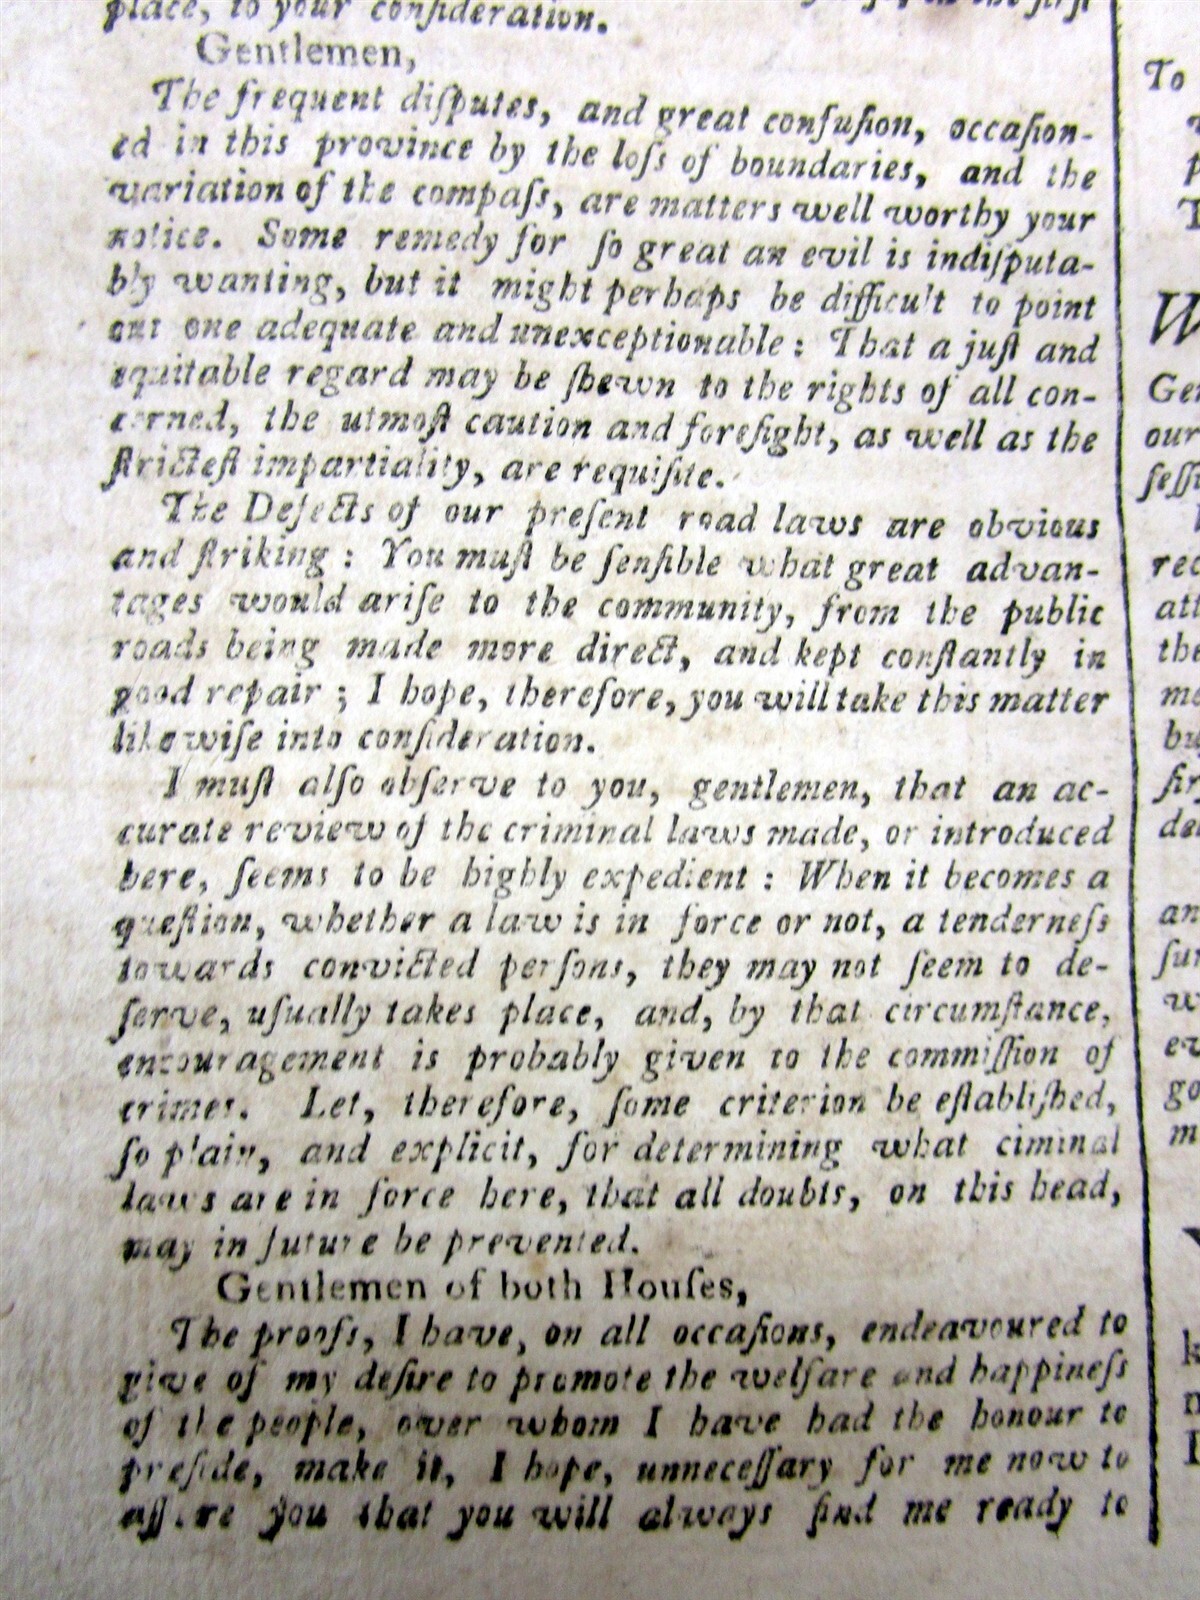 place, to your conſideration.
Gentlemen,
The frequent diſputes, and great confuſion, occaſion-
ed in this province by the loſs of boundaries, and the
variation of the compaſs, are matters well worthy your
notice. Some remedy for ſo great an evil is indiſputa-
bly wanting, but it might perhaps be difficult to point
out one adequate and unexceptionable : That a juſt and
equitable regard may be ſhewn to the rights of all con-
cerned, the utmoſt caution and foreſight, as well as the
ſtricteſt impartiality, are requiſite.
The Defects of our preſent road laws are obvious
and ſtriking : You muſt be ſenſible what great advan-
tages would ariſe to the community, from the public
roads being made more direct, and kept conſtantly in
good repair ; I hope, therefore, you will take this matter
likewiſe into conſideration.
I muſt alſo obſerve to you, gentlemen, that an ac-
curate review of the criminal laws made, or introduced
here, ſeems to be highly expedient : When it becomes a
queſtion, whether a law is in force or not, a tenderneſs
towards convicted perſons, they may not ſeem to de-
ſerve, uſually takes place, and, by that circumſtance,
encouragement is probably given to the commiſſion of
crimes. Let, therefore, ſome criterion be eſtabliſhed,
ſo plain, and explicit, for determining what ciminal
laws are in force here, that all doubts, on this head,
may in future be prevented.
Gentlemen of both Houſes,
The proofs, I have, on all occaſions, endeavoured to
give of my deſire to promote the welfare and happineſs
of the people, over whom I have had the honour to
preſide, make it, I hope, unneceſſary for me now to
aſſure you that you will always find me ready to
To